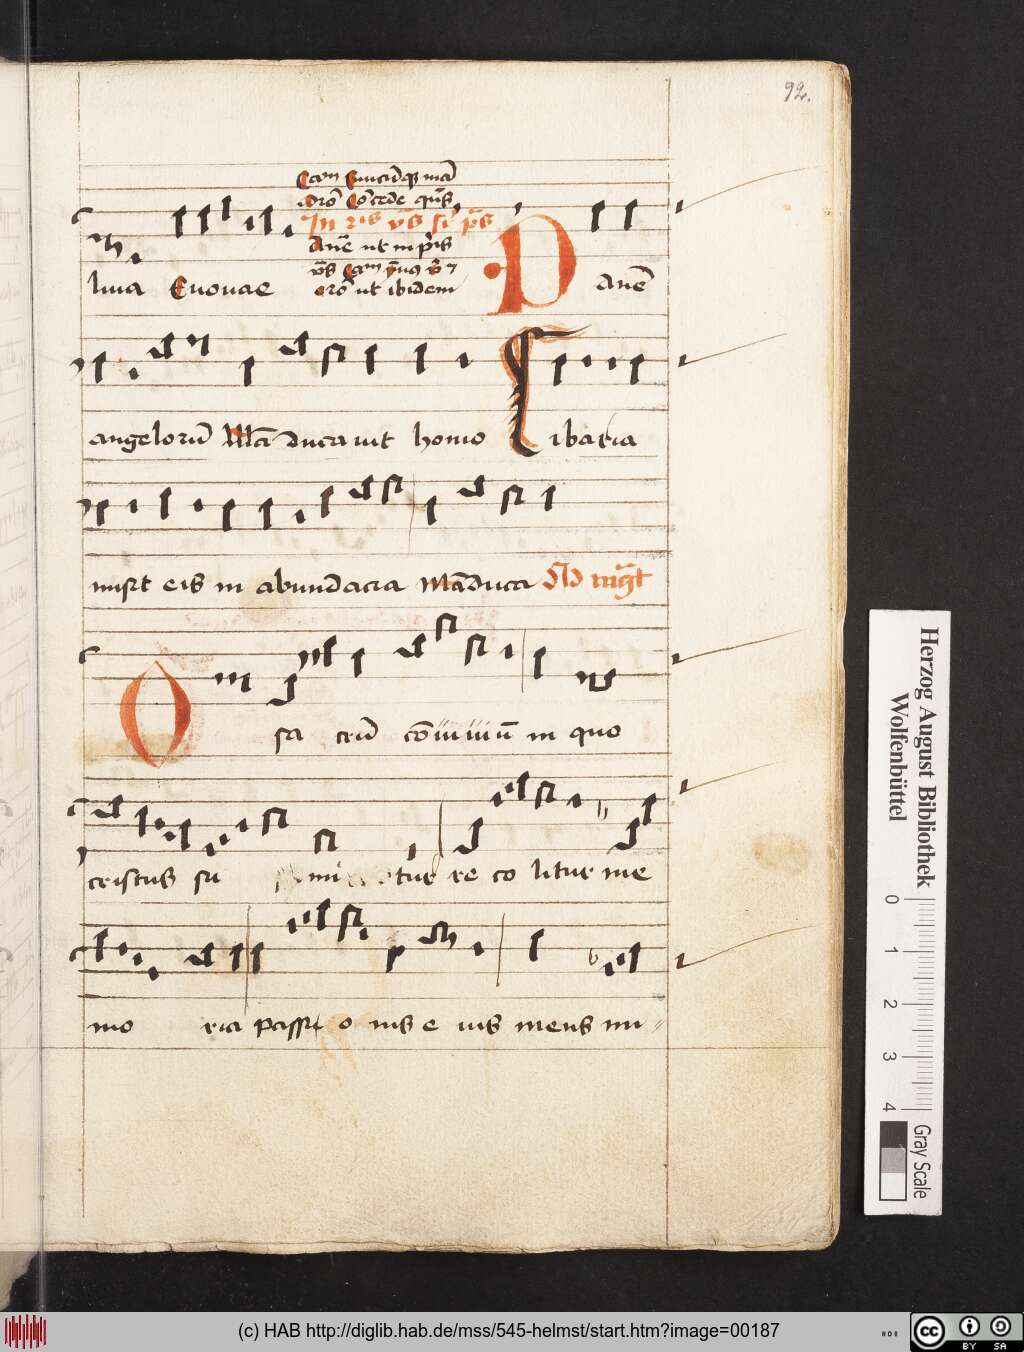 92.
In r̄is v̄s sī p̄s
luia Euouae ut ibidem Panē
angelorū Māducauit homo Cibaria
misit eis in abundācia Māduca Ad mḡt
O sa crū cōuiuiū in quo
cristus su mi tur re co litur me
mo ria passi o nis e ius mens im
Herzog August Bibliothek
Wolfenbüttel
0 1 2 3 4
Gray Scale
(c) HAB http://diglib.hab.de/mss/545-helmst/start.htm?image=00187
cc BY SA